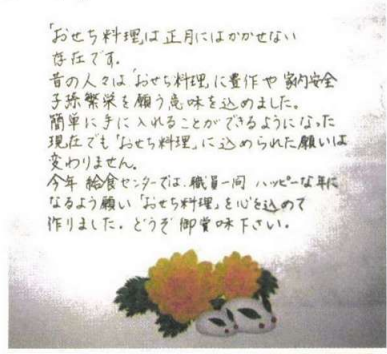 「おせち料理」は正月にはかかせない
存在です。
昔の人々は「おせち料理」に豊作や家内安全
子孫繁栄を願う意味を込めました。
簡単に手に入れることができるようになった
現在でも「おせち料理」に込められた願いは
変わりません。
今年給食センターでは、職員一同 ハッピーな年に
なるよう願い「おせち料理」を心を込めて
作りました。どうぞ御賞味下さい。